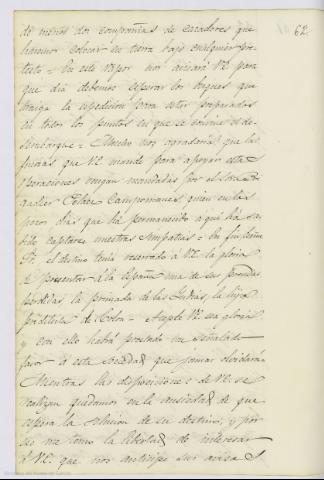 62
de menos dos compañias de cazadores que
haremos colocar en tierra bajo cualquier pre-
testo = En este vapor nos avisará V.E. para
que dia debemos esperar los buques que
traiga la espedicion para estar preparados
en todos los puntos en que se combine el de-
sembarque = Mucho nos agradaria que las
fuerzas que V.E. mande para apoyar estas
operaciones vengan mandadas por el Sor. Bri-
gadier Pelaez Campomanes, quien en los
pocos dias que ha permanecido aqui ha sa-
bido captarse nuestras simpatias = En fin, Exmo
Sr. el destino tenia reservado á V.E. la gloria
de presentar á la España una de sus prendas
perdidas, la primada de las Indias, la hija
predilecta de Colon = Acepte V.E. esa gloria
y con ello habrá prestado un señalado
favor á esta sociedad que jamas olvidará
Mientras las disposiciones de V.E. se
realizan quedamos en la ansiedad de que
espera la solucion de su destino, y por
eso me tomo la libertad de interesar
á V.E. que nos anticipe sus avisos